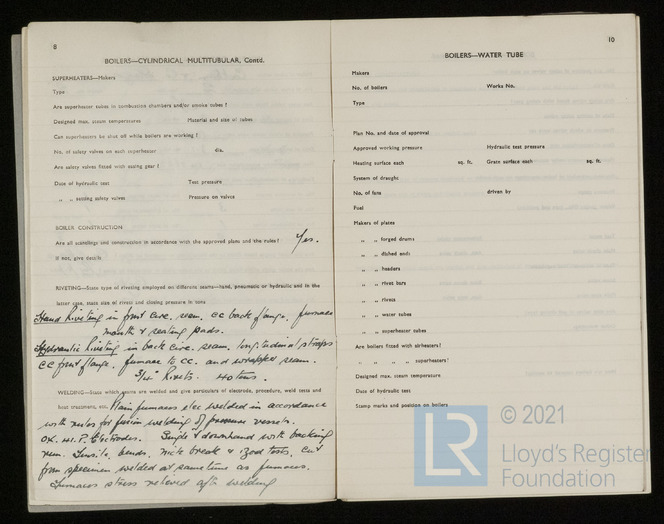 8
BOILERS—CYLINDRICAL MULTITUBULAR, Contd.
SUPERHEATERS—Makers
Type
Are superheater tubes in combustion chambers and/or smoke tubes?
Designed max. steam temperatures Material and size of tubes
Can superheaters be shut off while boilers are working?
No. of safety valves on each superheater dia.
Are safety valves fitted with easing gear?
Date of hydraulic test Test pressure
„ „ setting safety valves Pressure on valves
BOILER CONSTRUCTION
Are all scantlings and construction in accordance with the approved plans and the rules? Yes.
If not, give details
RIVETING—State type of riveting employed on different seams—hand, pneumatic or hydraulic and in the
latter case, state size of rivets and closing pressure in tons
Hand Riveting in front circ. seam, CC back flange, furnace
mouth & seating pads.
Hydraulic Riveting in back circ. seam, longitudinal straps
CC front flange, furnace to CC. and wrapper seam.
3/4" Rivets. 40 tons.
WELDING—State which seams are welded and give particulars of electrode, procedure, weld tests and
heat treatment, etc. Plain furnaces elec welded in accordance
with rules for fusion welding of pressure vessels.
Electrodes. Single V downhand with backing
run. Tensile, bends, nick break & izod tests, cut
from specimen welded at same time as furnaces.
Furnaces stress relieved after welding
10
BOILERS—WATER TUBE
Makers
No. of boilers Works No.
Type
Plan No. and date of approval
Approved working pressure Hydraulic test pressure
Heating surface each sq. ft. Grate surface each sq. ft.
System of draught
No. of fans driven by
Fuel
Makers of plates
„ „ forged drums
„ „ dished ends
„ „ headers
„ „ rivet bars
„ „ rivets
„ „ water tubes
„ „ superheater tubes
Are boilers fitted with airheaters?
„ „ „ „ superheaters?
Designed max. steam temperature
Date of hydraulic test
Stamp marks and position on boilers
LR
© 2021
Lloyd's Register
Foundation